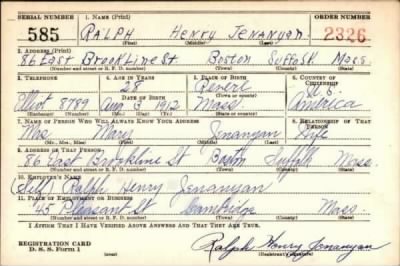 SERIAL NUMBER 1. NAME (Print) ORDER NUMBER
585 RALPH HENRY JENANYAN 2326
(First) (Middle) (Last)
2. ADDRESS (Print)
86 East Brookline St Boston Suffolk Mass
(Number and street or R. F. D. number) (Town) (County) (State)
3. TELEPHONE 4. AGE IN YEARS 5. PLACE OF BIRTH 6. COUNTRY OF CITIZENSHIP
28 Revere U.S.
DATE OF BIRTH (Town or county)
Elliot 8789 Aug 3 1912 Mass. America
(Exchange) (Number) (Mo.) (Day) (Yr.) (State or country)
7. NAME OF PERSON WHO WILL ALWAYS KNOW YOUR ADDRESS 8. RELATIONSHIP OF THAT PERSON
Mrs Mary Jenanyan Wife
(Mr., Mrs., Miss) (First) (Middle) (Last)
9. ADDRESS OF THAT PERSON
86 East Brookline St Boston Suffolk Mass
(Number and street or R. F. D. number) (Town) (County) (State)
10. EMPLOYER'S NAME
(Self) Ralph Henry Jenanyan
11. PLACE OF EMPLOYMENT OR BUSINESS
45 Pleasant St Cambridge Mass
(Number and street or R. F. D. number) (Town) (County) (State)
I AFFIRM THAT I HAVE VERIFIED ABOVE ANSWERS AND THAT THEY ARE TRUE.
REGISTRATION CARD
D. S. S. Form 1 Ralph Henry Jenanyan
(over) (Registrant's signature)